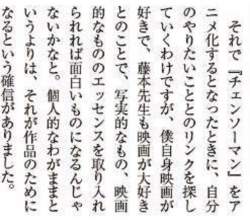 それで『チェンソーマン』をア
ニメ化するとなったときに、自分
のやりたいこととのリンクを探し
ていくわけですが、僕自身映画が
好きで、藤本先生も映画が大好き
とのことで、写実的なもの、映画
的なもののエッセンスを取り入れ
られれば面白いものになるんじゃ
ないかなと。個人的なわがままと
いうよりは、それが作品のために
なるという確信がありました。